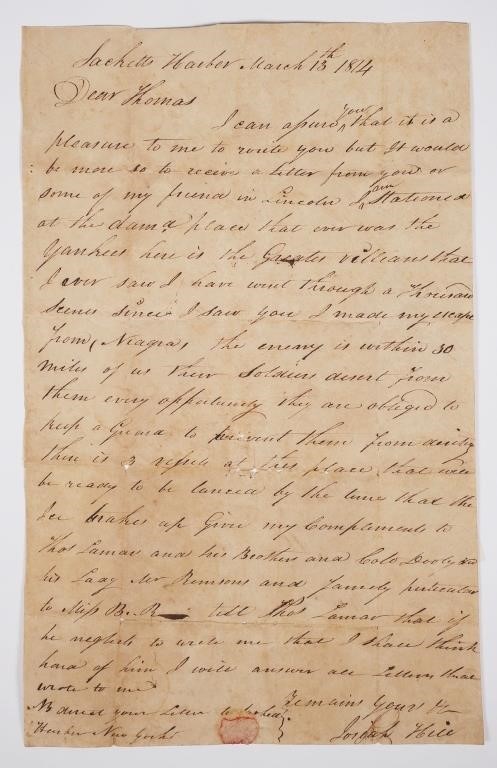 Sacketts Harbor March 13th 1814
Dear Thomas
I can assure you that it is a
pleasure to me to write you but It would
be more so to recive a letter from you or
some of my friend in Lincoln I am Stationed
at the damd place that ever was the
Yankees here is the Greates villeans that
I ever saw I have went through a Thousan
Scenes since I saw you I made my escape
from Niagra, the enemy is within 30
miles of us their Soldiers desert from
them every oppertunity they are obleged to
keep a Guard to prevent them from
there is 3 vessels at this place that will
be ready to be lanced by the time that the
Ice brakes up Give my Compliments to
Thos Lamar and his Brothers and Colo Dooly and
his Lady Mr Remsons and famely perticular
to Miss B. R tell Thos Lamar that if
he neglects to write me that I shall think
hard of him I will answer all Letters that
wrote to me
Remains yours &c
NB direct your Letter to
Harbor New York
Josiah Hill